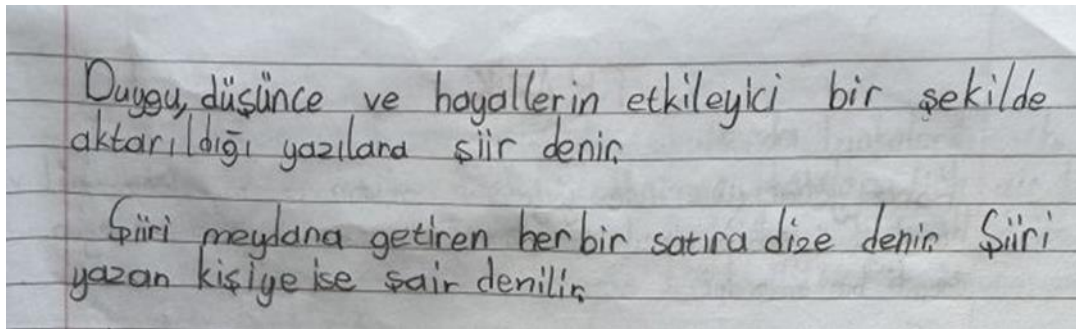 Duygu, düşünce ve hayallerin etkileyici bir şekilde
aktarıldığı yazılara şiir denir.
Şiiri meydana getiren her bir satıra dize denir. Şiiri
yazan kişiye ise şair denilir.